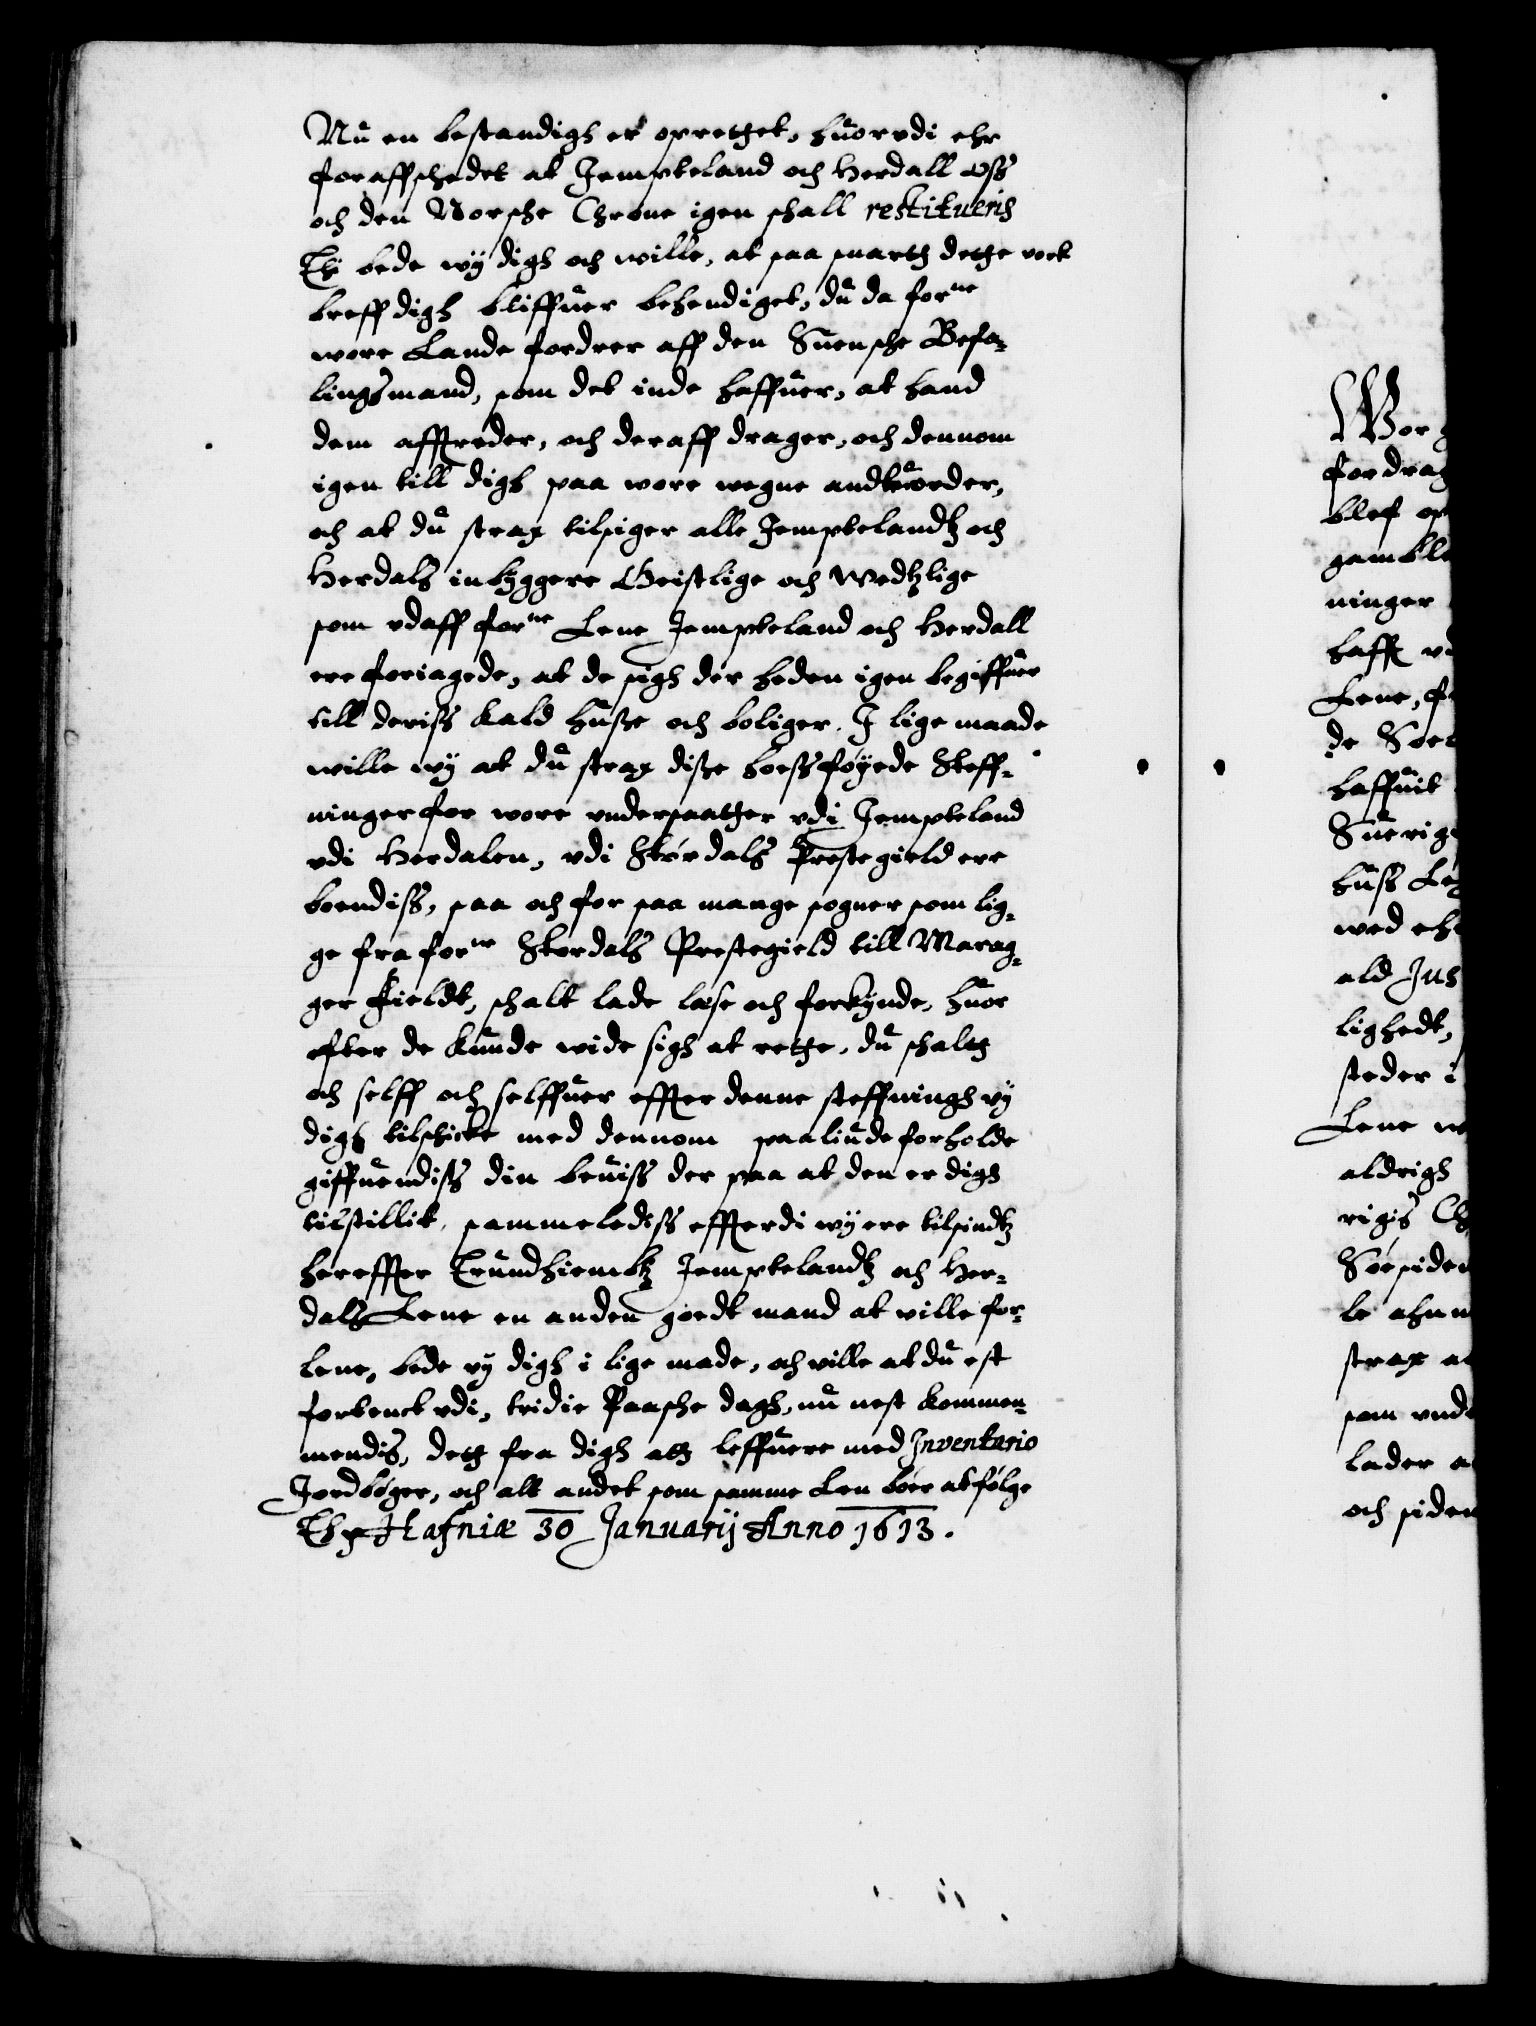 Nu en bestandigh er oprethet, huorudi ehr
foraffschedet at Jempteland och Herdall oss
och den Norsche Chrone igen schall restitueris
Thj bede wÿ digh och wille, at saa snarth dethe vort
breff digh bliffuer behendiget, du da forne
wore Lande fordrer aff den Suensche Befa-
lingsmand, som det inde haffuer, at hand
dem afftreder, och deraff drager, och dennom
igen till digh paa wore wegne andtworder,
och at du strax tilsiger alle Jemptelandtz och
Herdals inbyggere Geistlige och Wedtzlige
som vdaff forne Lene Jempteland och Herdall
ere foriagede, at de sigh der heden igen begiffuer
till deriss Kald husse och boliger. J lige maade
wille wÿ at du strax disse hoessføyede Steff-
ninger for wore undersaather udi Jempteland
vdi Herdalen, vdi Størdals Prestegield ere
boendiss, saa och for saa mange sogner som lig-
ge fra forne Stordals Prestegield till Marag-
ger Fieldt, schalt lade læse och forkynde, huor
efter de Kunde wide sigh at rethe, du schalth
och selff och selffuer effter denne steffningh vÿ
digh tilschicke med dennom saaliude forholde
giffuendiss din beuiss der paa at den er digh
tilstillit, sammelediss effterdi wÿ ere tilsindtz
hereffter Trundhiembtz Jemptelandtz och Her-
dals Lene en anden goedt mand at ville for-
lene, bede vÿ digh i lige made, och ville at du est
fortenckt vdi, tridie Paasche dagh, nu nest kommen-
mendis, deth fra digh ath leffuere med Inventario
Jordbøger, och alt andet som samme Len bøer at følge
Hafniæ 30 Januarij Anno 1613.
Wor
fordrag
blef op
gamble
ninger
hafft
Lene,
de
haffuit
Suerig
huss
wed
ald Jus
lighedt,
steder i
Lene
aldrigh
rigis
Søesiden
le
strax
som
lader
och siden